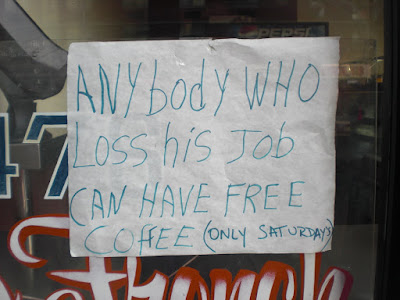 PEPSI
ANYbody WHO
Loss his Job
CAN HAVE FREE
COFFEE (ONLY SATURDAYS)
47
through